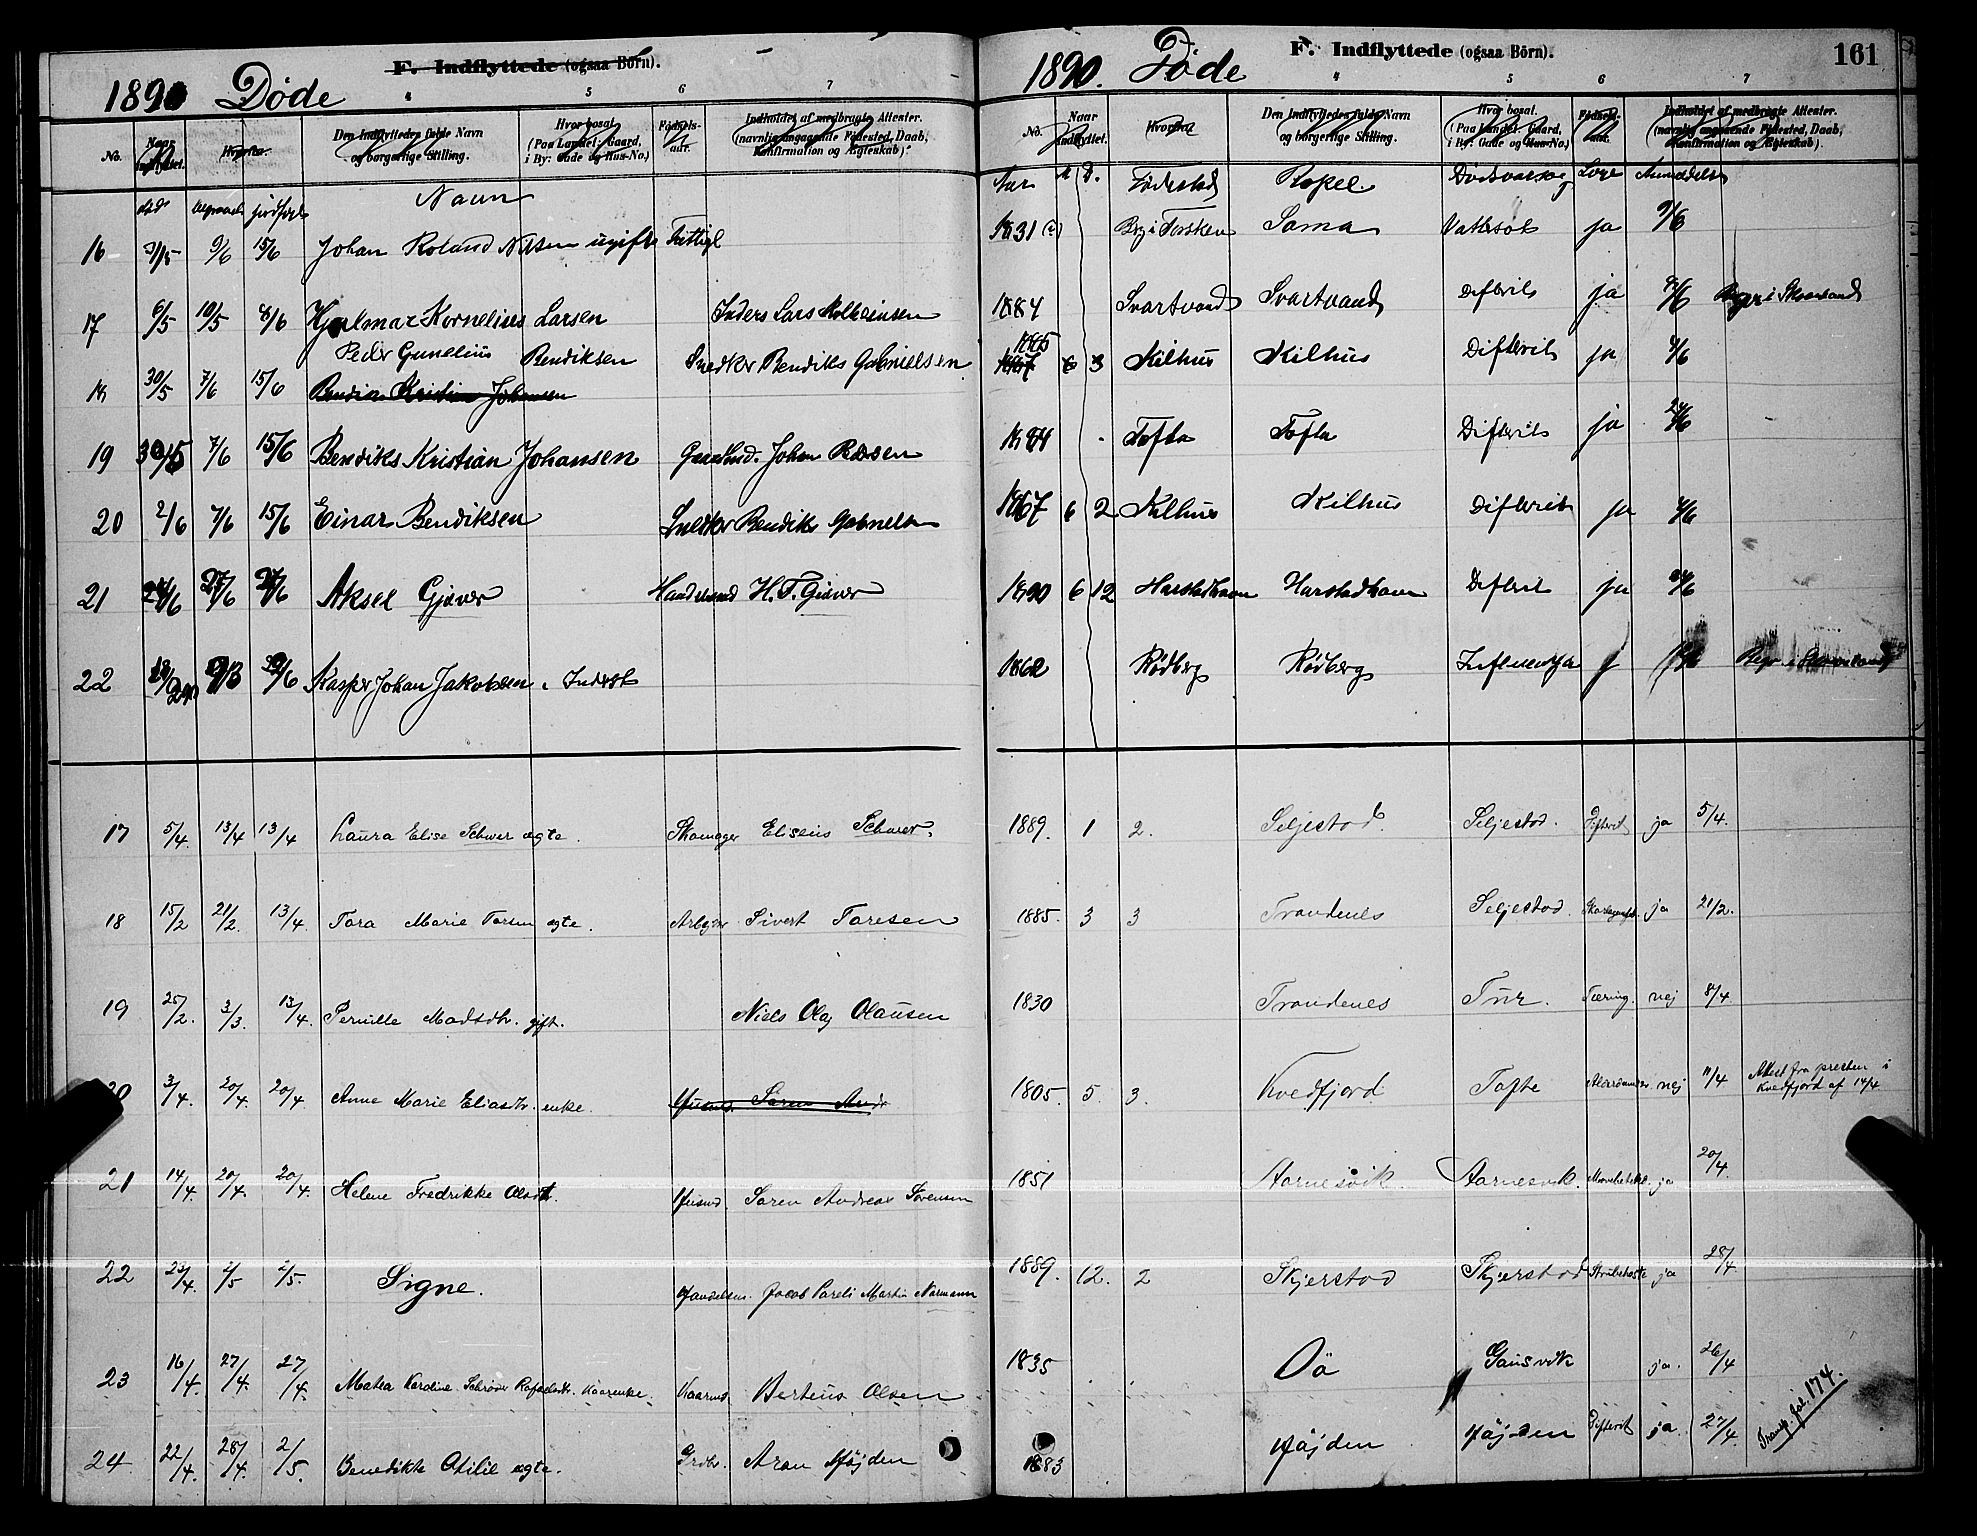 F. Indflyttede (ogsaa Börn).
1890 Døde
4 5 6 7
No. Naar indflyttet. Hvorfra. Den Indflyttedes fulde Navn og borgerlige Stilling. Hvor bosat. (Paa Landet: Gaard, i By: Gade og Hus-No.) Fødsels-aar. Indholdet af medbragte Attester. (navnlig angaaende Fødested, Daab, Konfirmation og Ægteskab).
død begravet jordfæst Navn
16 9/6 15/6 Johan Roland Nilsen ugift Fattigl
17 6/5 10/5 8/6 Hjalmar Kornelius Larsen Inders Lars
Peder Gunelius Bendiksen Snedker Bendiks Gabrielsen
18 30/5 7/6 15/6 Bendix Kristian Johansen
19 30/5 7/6 15/6 Bendiks Kristian Johansen Johan
20 2/6 7/6 15/6 Einar Bendiksen Snedker Bendiks Gabriels
21 24/6 27/6 27/6 Aksel Gjæver Handelsmd H. F. Giæver
22 Kasper Johan Jakobsen, Inderst
17 5/4. 13/4 13/4 Laura Elise Schwer ægte. Skomager Eliseus Schwer.
18 15/2 21/2. 13/4. Tora Marie Torsen ægte. Arbejder Sivert Toresen
19 25/2. 3/3. 13/4. Pernille Madsdtr. gift. Niels Olaj Olausen
20 3/4. 20/4. 20/4. Anne Marie Eliasdtr. enke. Husmd. Søren Andr
21 14/4. 20/4. 20/4. Helene Fredrikke Olsdt. Husmd. Søren Andreas Sørensen
22 23/4. 2/5 2/5. Signe. Handelsm. Jacob Pareli Martin Normann
23 16/4. 27/4. 27/4. Matea Karoline Schrøder Rafaelsdtr. Kaarenke. Kaarmd. Berteus Olsen
24. 22/4. 28/4. 2/5. Benedikte Otilie ægte. Grdbr. Aron Højden
161
1890. Døde
F. Indflyttede (ogsaa Börn).
4 5 6 7
No. Naar indflyttet. Hvorfra. Den Indflyttedes fulde Navn og borgerlige Stilling. Hvor bosat. (Paa Landet: Gaard, i By: Gade og Hus-No.) Fødsels-aar. Indholdet af medbragte Attester. (navnlig angaaende Fødested, Daab, Konfirmation og Ægteskab).
Aar M D. Fødested Bopel Dødsaarsag Læge Anmeldels
1831 Berg i Torsken Sama Vattersot ja 9/6
1884 Svartvand Svartvand Difterit ja
1885
1887 6 3 Kilhus Kilhus Difterit ja
1884 Tofta Tofta Difterit ja 24/6
1887 6 2 Kilhus Kilhus Difterit ja
1890 6 12 Harstadhavn Harstadhavn Difterit ja 24/6
1862 Rødberg Rødberg Influentsa j
1889. 1 2. Seljestad. Seljestad. Difterit ja 5/4.
1885. 3 3 Trondenes Seljestad. ja 21/2.
1830 Trondenes Tur. Tæring. nej 8/4
1805. 5. 3. Kvedfjord Tofte Alderdom nej 11/4 Attest fra presten i
Kvedfjord af 14/4
1851 Aarnesvik. Aarnesvik. ja 20/4.
1889. 12. 2 Skjerstad Skjerstad Strubehoste ja 28/4
1835 Oö Gausvik ja. 26/4
1883 Højden Højden Difterit ja. 27/4.
Transp. fol. 174.